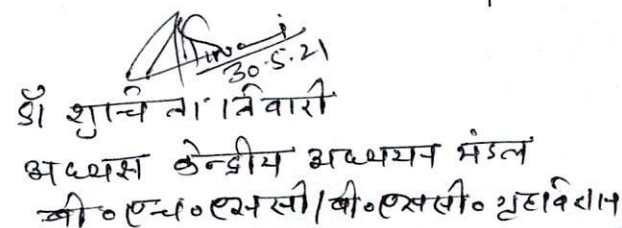 30.5.21
डॉ शुचि तिवारी
अध्यक्ष केन्द्रीय अध्ययन मंडल
बी०एच०एससी/बी०एससी० गृहविज्ञान